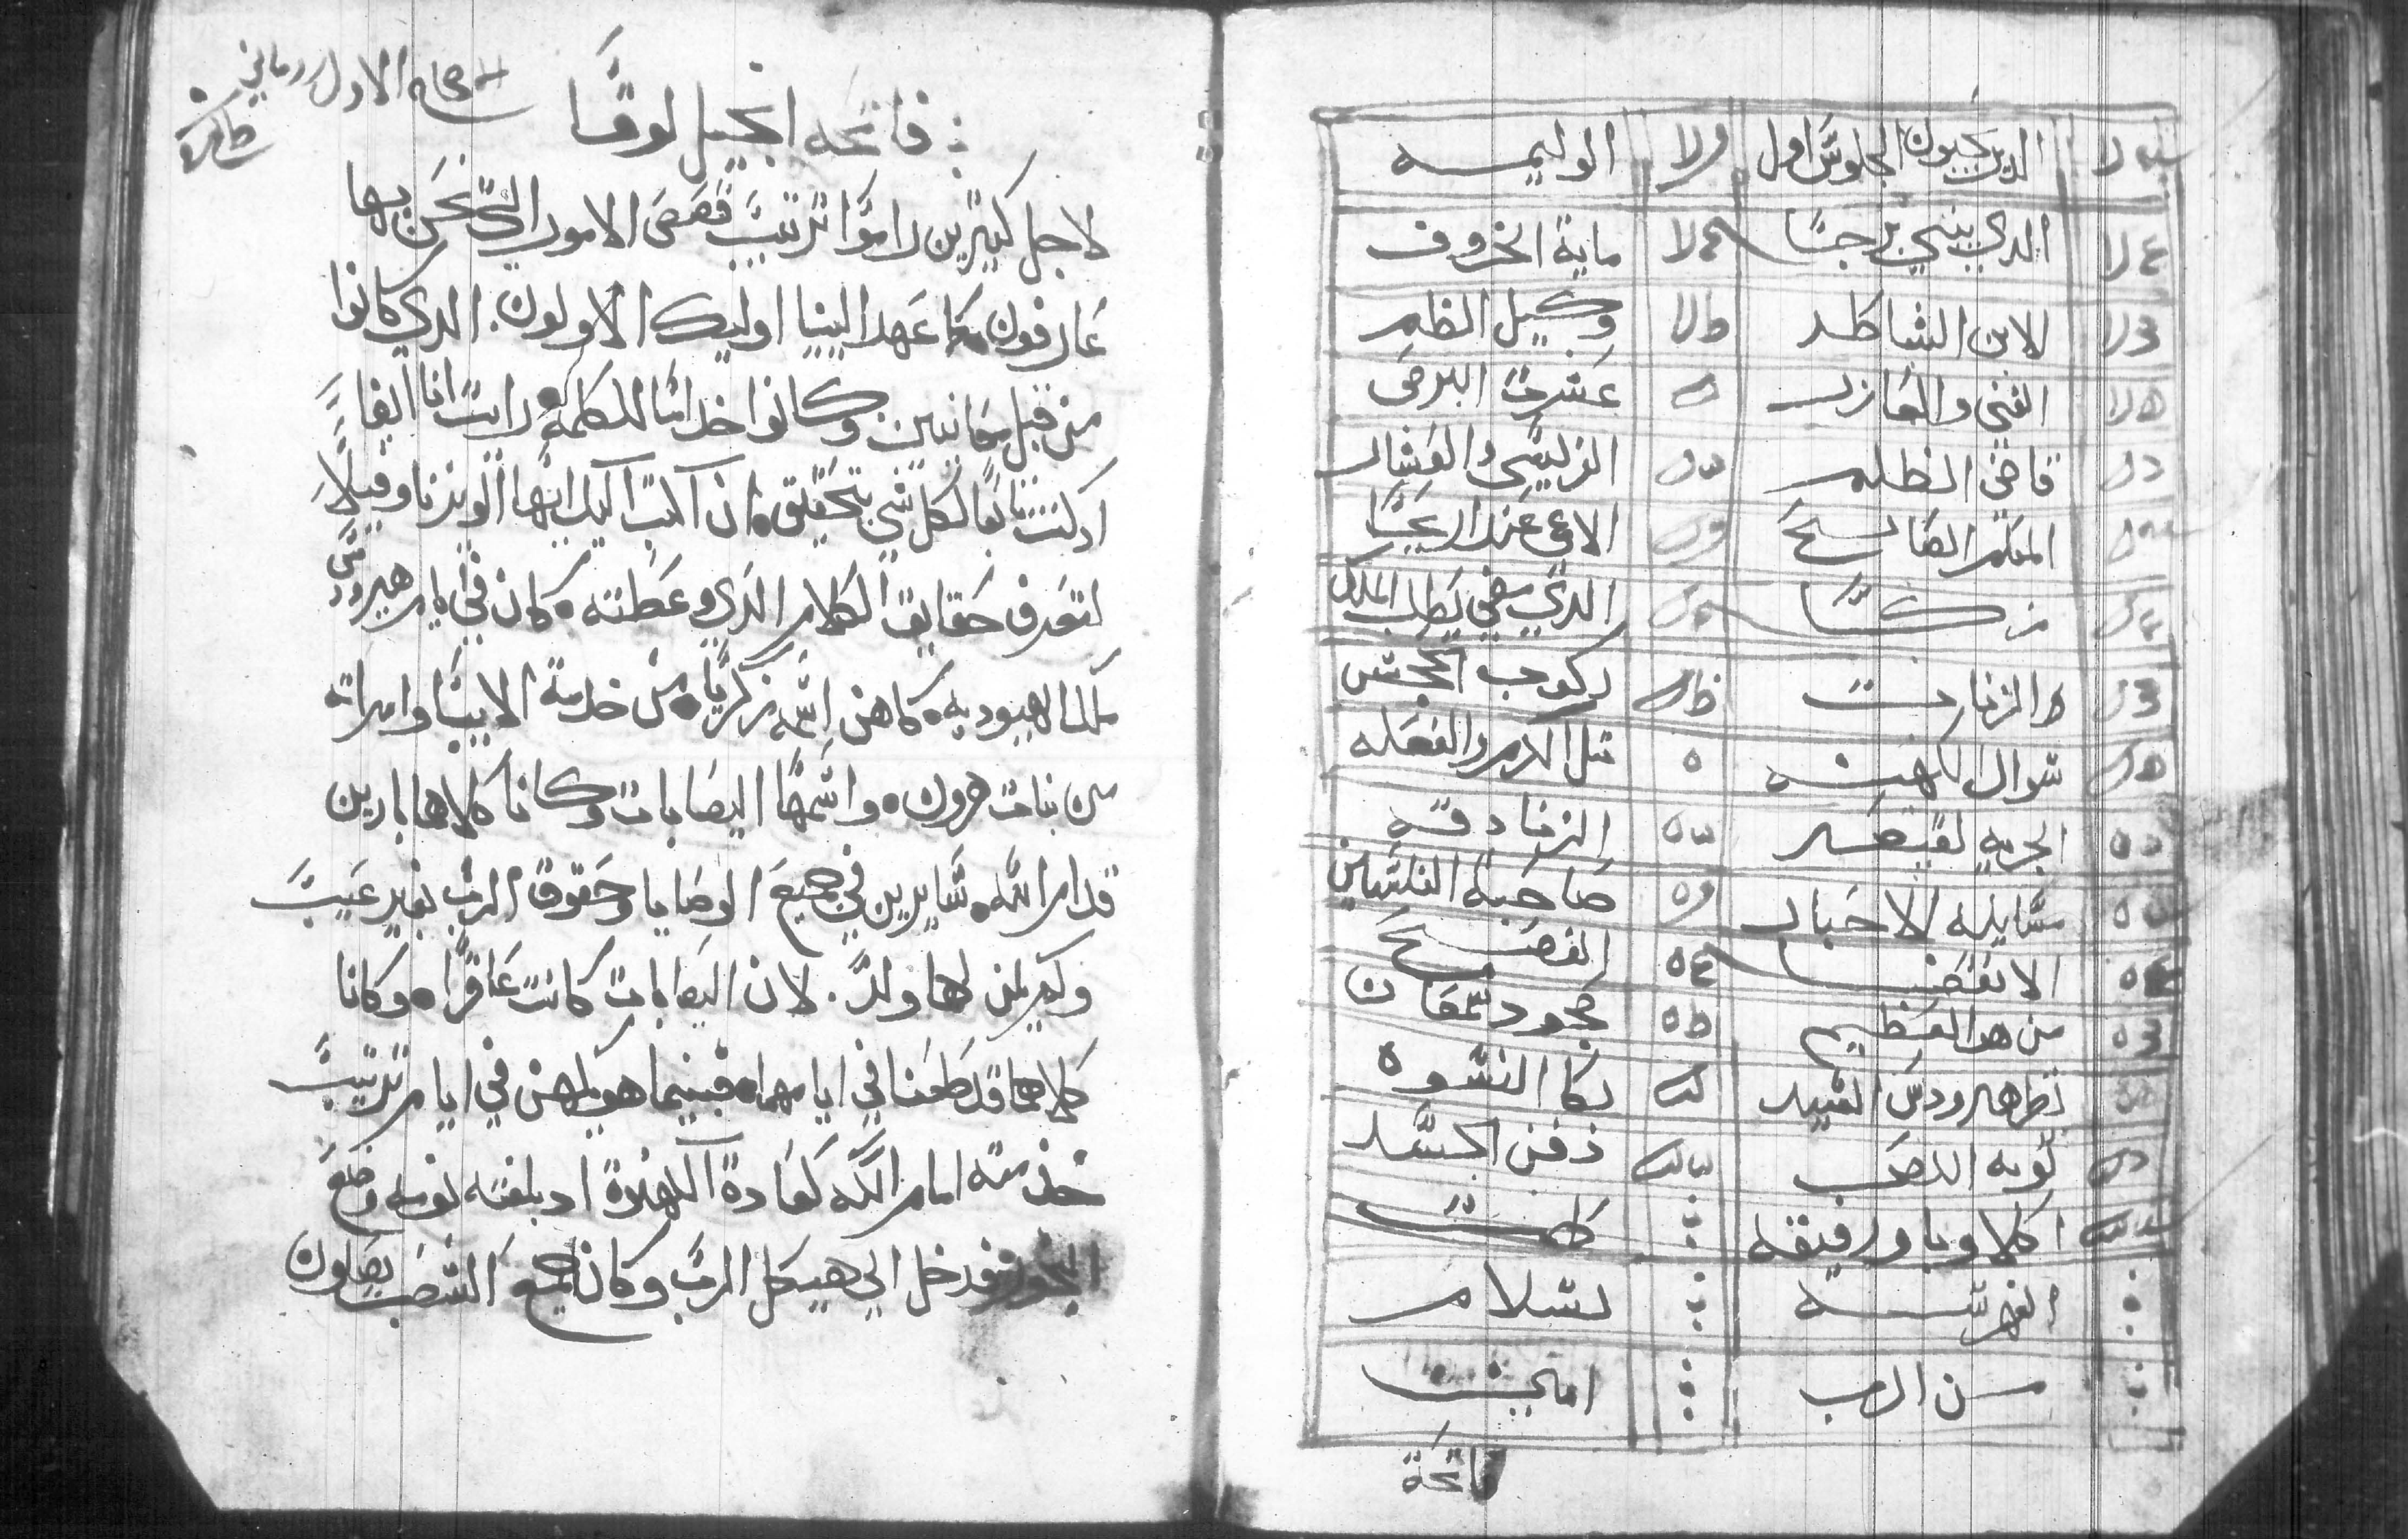 الدين يحبون الجلوس اول
الوليمه
الدي يبني برجا
ماية الخروف
الابن الشاطر
وكيل الظلم
الغني والعازر
عشرة البرص
قاضي الظلم
الفريسي والعشار
المعلم الصالح
الاعمى عند اريحا
زكا
الدي مضي يطلب الملك
ركوب الجحش
سوال الكهنه
مثل الكرم والفعله
الجزيه لقيصر
الزنادقه
مسايله الاحبار
صاحبة الفلسين
الانقضا
الفصح
من هو العظيم
جحود سمعان
نظر هيرودس السيد
بكا النسوه
توبه اللص
دفن الجسد
اكلاوبا ورفيقه
كملت
الفهرسه
بسلام
من الرب
امين
فاتحة
فاتحه انجيل لوقا
لاجل كتيرين راموا ترتيب قصص الامور التي نحن بها
عارفون كما عهد الينا اوليك الاولون الدي كانوا
من قبل معاينين وكانوا خداما للكلمة رايت انا ايضا
اد كنت تابعا لكل شي بتحقيق ان اكتب اليك ايها
لتعرف حقايق الكلام الدي وعظته كان في ايام هيرودس
ملك اليهوديه كاهن اسمه زكريا من خدمة الابيا وامراته
من بنات هرون واسمها اليصابات وكانا كلاهما بارين
قدام الله سايرين في جميع الوصايا وحقوق الرب بغير عيب
ولم يكن لهما ولد لان اليصابات كانت عاقرا وكانا
كلاهما قد طعنا في ايامهما فبينما هو يكهن في ايام ترتيب
خدمته امام الله كعادة الكهنوة اد بلغته نوبه وضع
البخور فدخل الي هيكل الرب وكان جميع الشعب يصلون